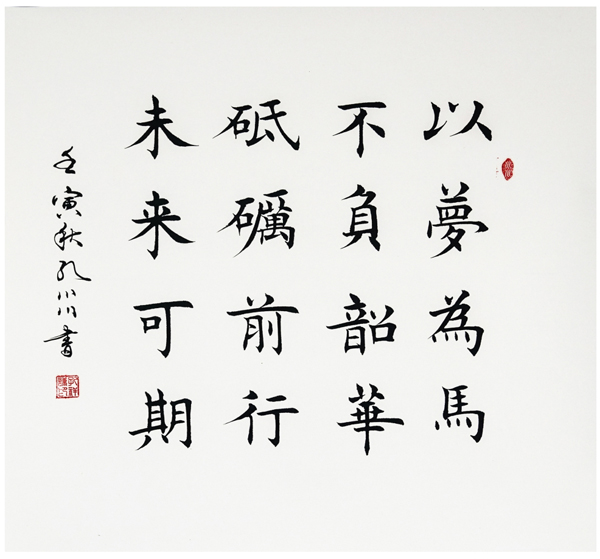 以夢為馬
不負韶華
砥礪前行
未來可期
壬寅秋孔小川書